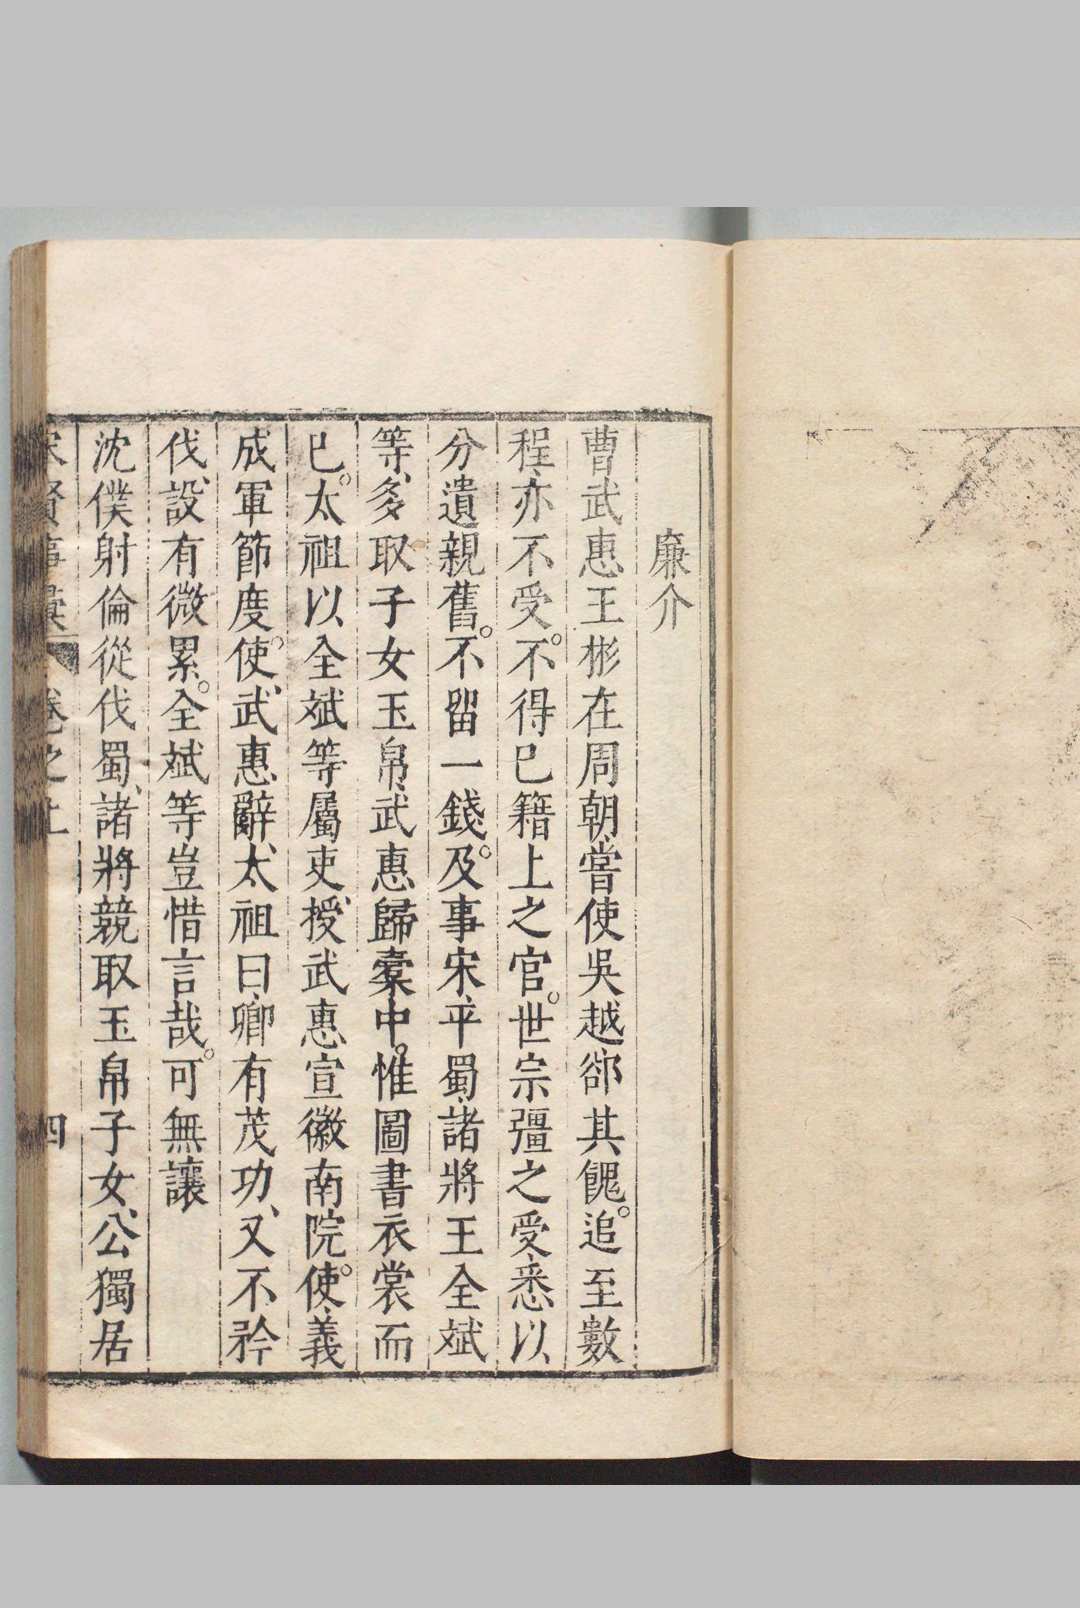 廉介
曹武惠王彬在周朝、嘗使吳越、郤其餽。追至數
程、亦不受。不得已籍上之官。世宗彊之受、悉以
分遺親舊。不留一錢。及事宋、平蜀、諸將王全斌
等、多取子女玉帛、武惠歸橐中。惟圖書衣裳而
已。太祖以全斌等屬吏、授武惠宣徽南院使。義
成軍節度使。武惠辭、太祖曰、卿有茂功、又不矜
伐、設有微累。全斌等豈惜言哉。可無讓
沈僕射倫從伐蜀、諸將競取玉帛子女、公獨居
宋賢事彙 卷之上 四